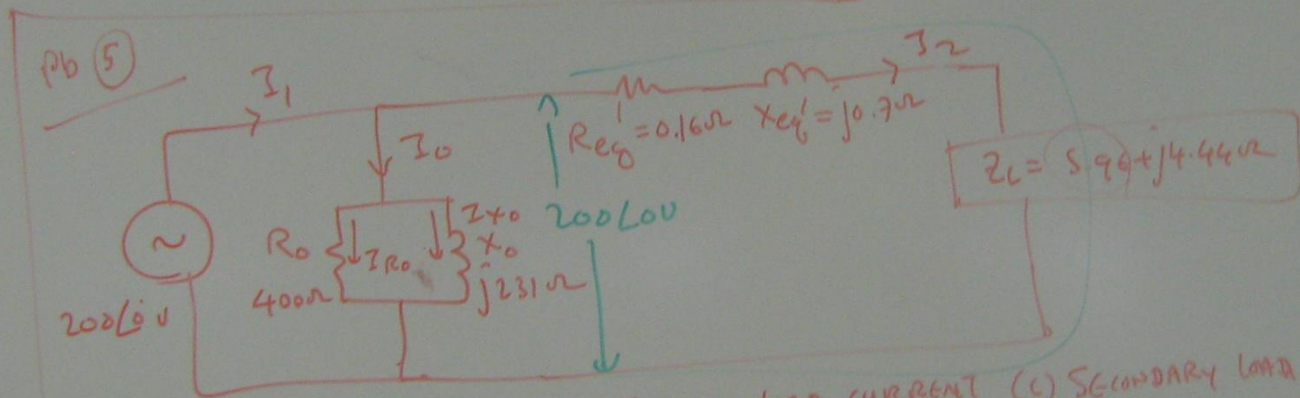 Pb 5
I1
I0
I2
Req' = 0.16Ω Xeq' = j0.7Ω
ZL = 5.94 + j4.44Ω
R0
IR0
IX0
X0
400Ω
j231Ω
200∠0V
200∠0V
~
CURRENT (C) SECONDARY LOAD